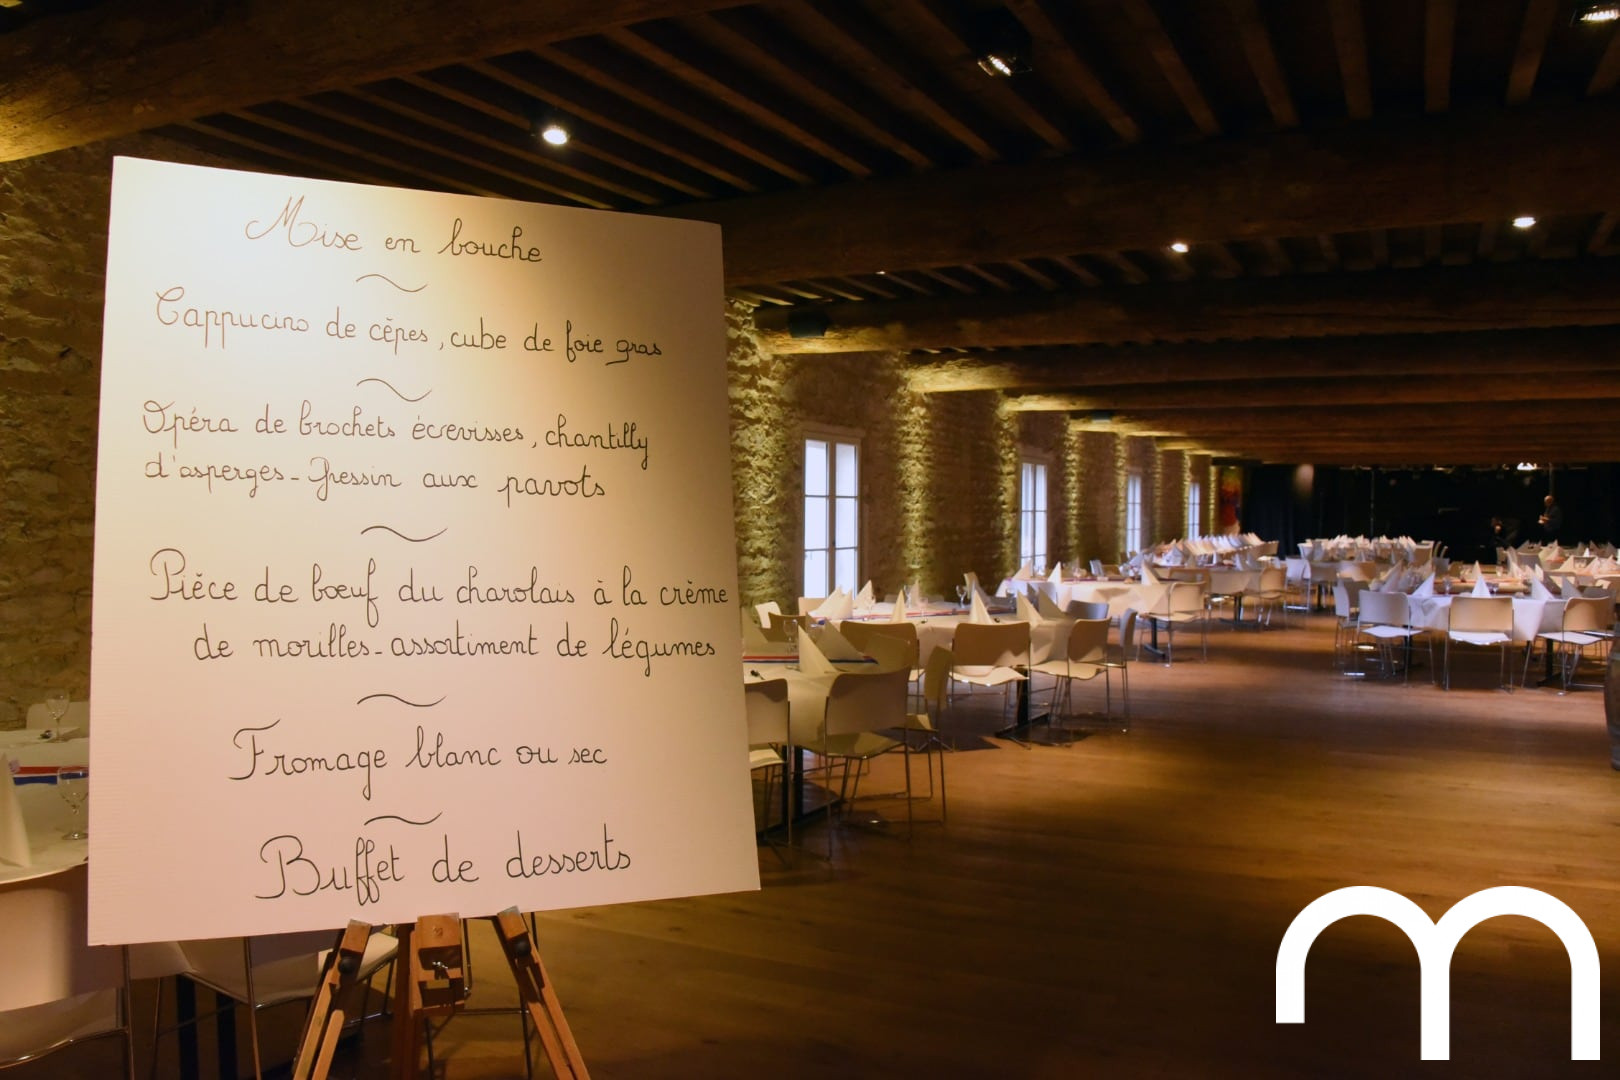 Mise en bouche
Cappucino de cêpes, cube de foie gras
Opéra de brochets écrevisses, chantilly
d'asperges - Gressin aux pavots
Pièce de bœuf du charolais à la crème
de morilles - assortiment de légumes
Fromage blanc ou sec
Buffet de desserts
m